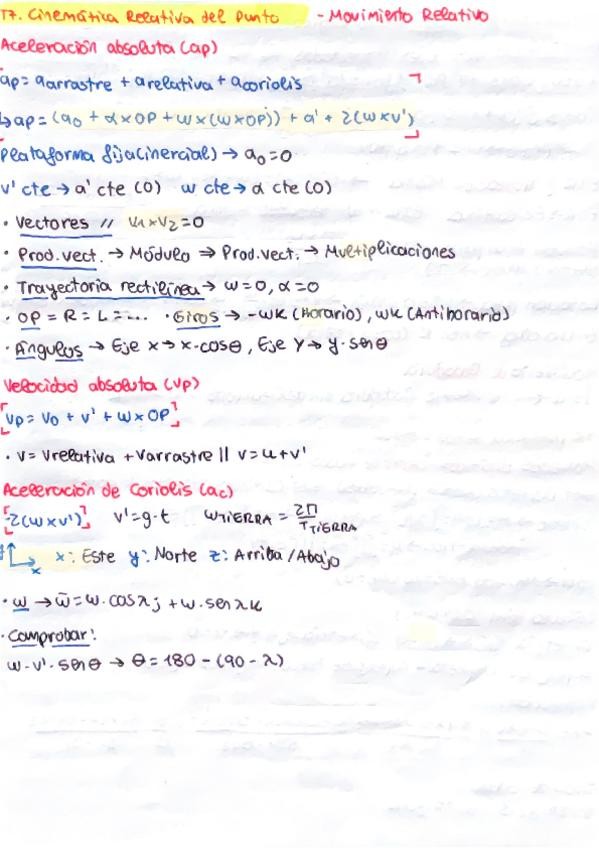 T7. Cinemática Relativa del Punto - Movimiento Relativo
Aceleración absoluta (ap)
ap = aarrastre + arelativa + acoriolis
↳ ap = (a0 + α×OP + w×(w×OP)) + a' + 2(w×v')
Plataforma fija (inercial) → a0 = 0
v' cte → a' cte (0) w cte → α cte (0)
• Vectores // V1×V2 = 0
• Prod. vect. → Módulo ⇒ Prod. vect. → Multiplicaciones
• Trayectoria rectilínea → w=0, α=0
• OP = R = L = ... • Giros → -wk (Horario), wk (Antihorario)
• Ángulos → Eje x → x·cosθ, Eje y → y·senθ
Velocidad absoluta (Vp)
[Vp = V0 + V' + w×OP]
• V = Vrelativa + Varrastre || V = u + v'
Aceleración de Coriolis (ac)
[-2(w×v')] v' = g·t WTIERRA = 2Π/TTIERRA
x: Este y: Norte z: Arriba/Abajo
x
• w → w̄ = w·cosλj + w·senλk
• Comprobar!
w·v'·senθ → θ = 180 - (90 - λ)